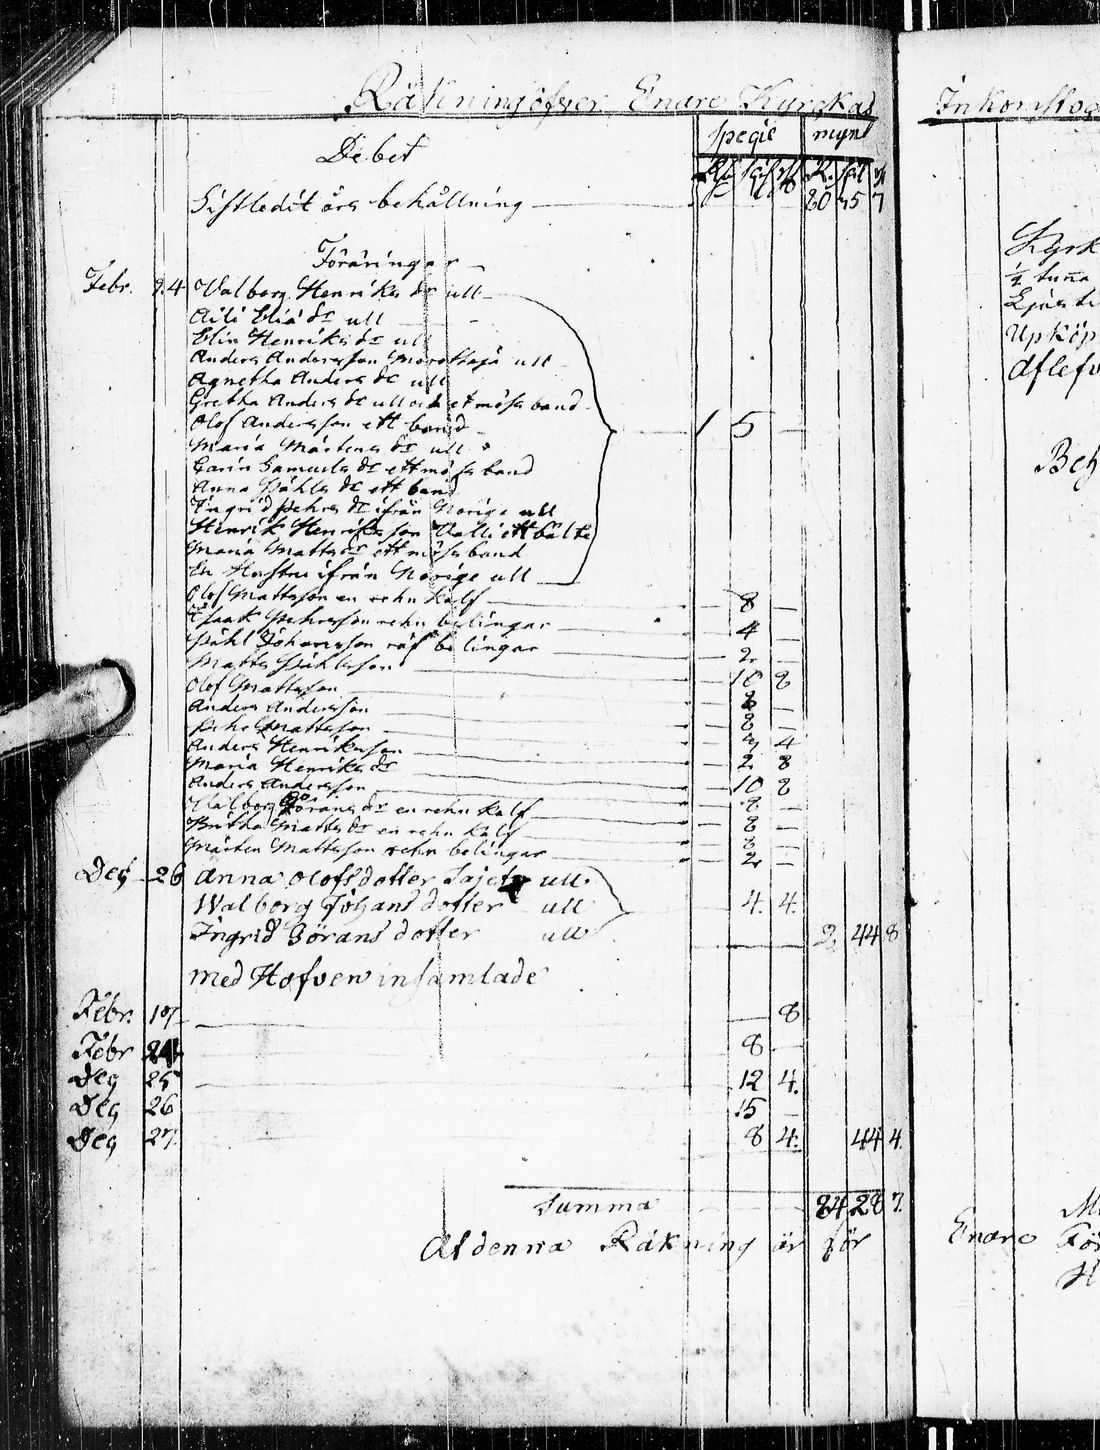 Räkning öfver Enare Kyrkas
Debet
specie mynt
Rd sk rst R. sk rst
Sistledit års behållning 20 35 7
Föräringar
Febr. 24 Valborg Henriks dr ull
Aili Eliæ dr ull
Elin Henriks dr ull
Anders Andersson Morottaja ull
Agnetha Anders dr ull
Gretha Anders dr ull och et mössband
Olof Andersson ett band 1 5
Maria Mårtens dr ull
Carin Samuels dr ett mössband
Anna Påhls dr ett band
Ingrid Pehrs dr ifrån Norige ull
Henrik Henriksson Valli ett bälte
Maria Matts dr ett mössband
En Hustru ifrån Norige ull
Olof Mattsson en rehn kalf 8 —
Isaak Pehrsson rehn belingar 4 —
Påhl Johansson räf belingar 2 —
Matts Påhlsson 10 8
Olof Mattsson 8 —
Anders Andersson 8 —
Pehr Mattsson
Anders Henriksson 4
Maria Henriks dr 2 8
Anders Andersson 10 8
Valborg Görans dr en rehn kalf 8 —
Britha Matts dr en rehn kalf 8 —
Mårten Mattsson rehn belingar 2 —
Deç 26 Anna Olofsdotter ull
Walborg Johans dotter ull 4. 4.
Ingrid Görans dotter ull 2 44 8
med Hofven insamlade
Febr. 17 — 8
Febr 24 8 —
Deç 25 12 4.
Deç 26 15 —
Deç 27. 8 4. 44 4.
Summa 24 28 7.
Af denna Räkning är för
Inkomstog
Kyrk
½ tunna
Ljus ti
Upköp
Aflefv
Beh
Enare